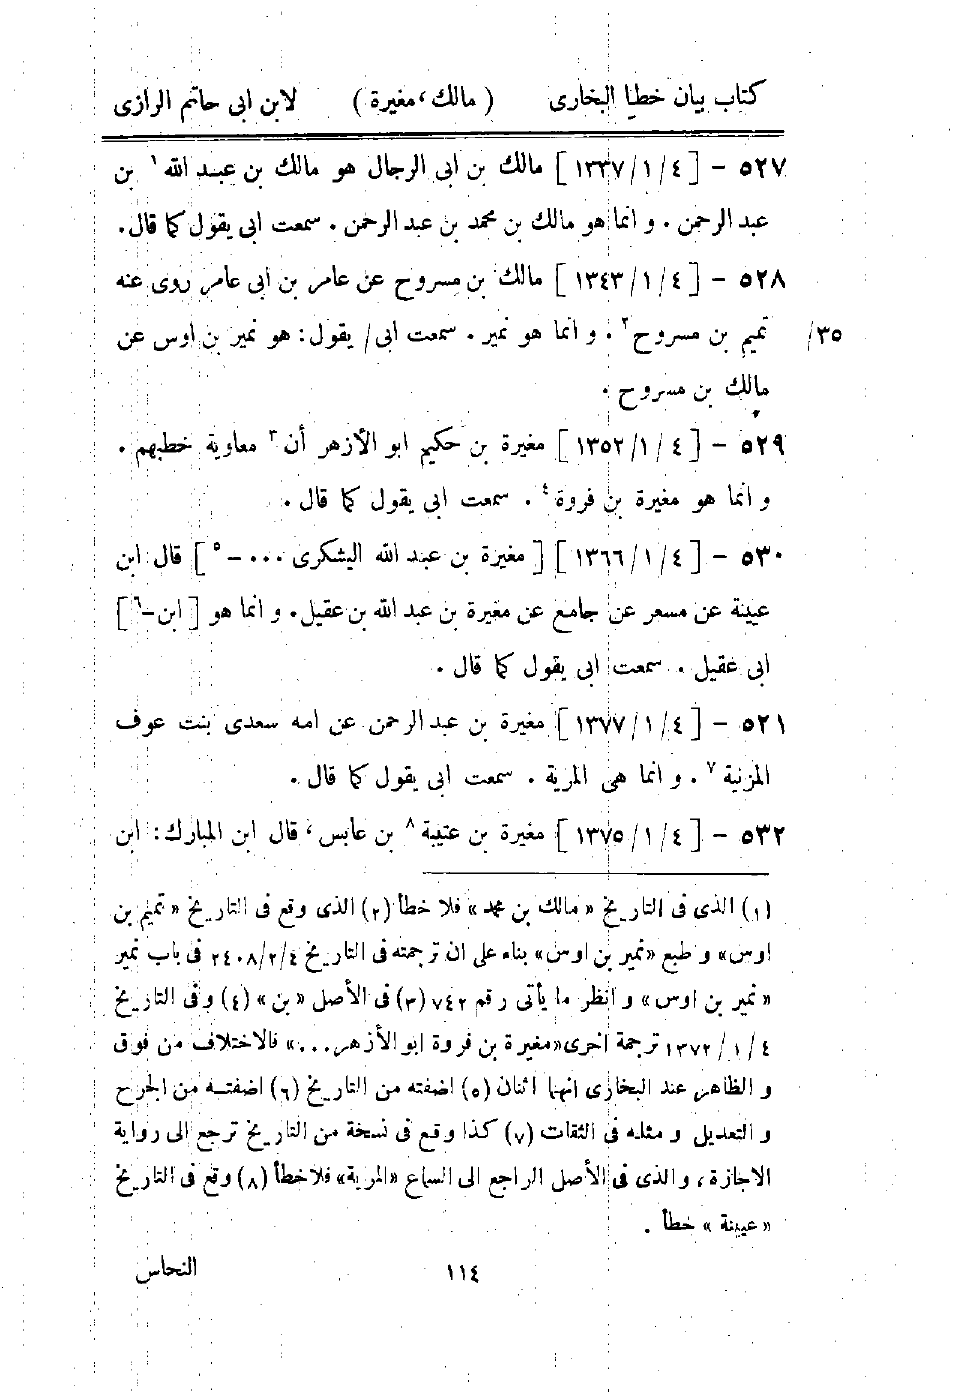 كتاب بيان خطأ البخارى ( مالك ، مغيرة ) لابن ابى حاتم الرازى
٥٢٧ - [ ٤ / ١ / ١٣٣٧ ] مالك بن ابى الرجال هو مالك بن عبد الله ١ بن
عبد الرحمن . و انما هو مالك بن محمد بن عبد الرحمن . سمعت ابى يقول كما قال .
٥٢٨ - [ ٤ / ١ / ١٣٤٣ ] مالك بن مسروح عن عامر بن ابى عامر روى عنه
٣٥/ تميم بن مسروح ٢ . و انما هو نمير . سمعت ابى / يقول : هو نمير بن اوس عن
مالك بن مسروح .
٥٢٩ - [ ٤ / ١ / ١٣٥٢ ] مغيرة بن حكيم ابو الأزهر أن ٣ معاوية خطبهم .
و انما هو مغيرة بن فروة ٤ . سمعت ابى يقول كما قال .
٥٣٠ - [ ٤ / ١ / ١٣٦٦ ] [ مغيرة بن عبد الله اليشكرى ... - ٥ ] قال ابن
عيينة عن مسعر عن جامع عن مغيرة بن عبد الله بن عقيل . و انما هو [ ابن - ٦ ]
ابى عقيل . سمعت ابى يقول كما قال .
٥٢١ - [ ٤ / ١ / ١٣٧٧ ] مغيرة بن عبد الرحمن عن امه سعدى بنت عوف
المزنية ٧ . و انما هى المرية . سمعت ابى يقول كما قال .
٥٣٢ - [ ٤ / ١ / ١٣٧٥ ] مغيرة بن عتيبة ٨ بن عابس ، قال ابن المبارك : ابن
(١) الذى فى التاريخ « مالك بن محمد » فلا خطأ (٢) الذى وقع فى التاريخ « تميم بن
اوس » و طبع « نمير بن اوس » بناء على ان ترجمته فى التاريخ ٤ / ٢ / ٢٤٠٨ فى باب نمير
« نمير بن اوس » و انظر ما يأتى رقم ٧٤٢ (٣) فى الأصل « بن » (٤) وفى التاريخ
٤ / ١ / ١٣٧٢ ترجمة اخرى « مغيرة بن فروة ابو الأزهر ... » فالاختلاف من فوق
و الظاهر عند البخارى انهما اثنان (٥) اضفته من التاريخ (٦) اضفتـه من الجرح
و التعديل و مثله فى الثقات (٧) كذا وقع فى نسخة من التاريخ ترجع الى رواية
الاجازة ، و الذى فى الأصل الراجع الى السماع « المرية » فلا خطأ (٨) وقع فى التاريخ
« عيينة » خطأ .
١١٤ النحاس